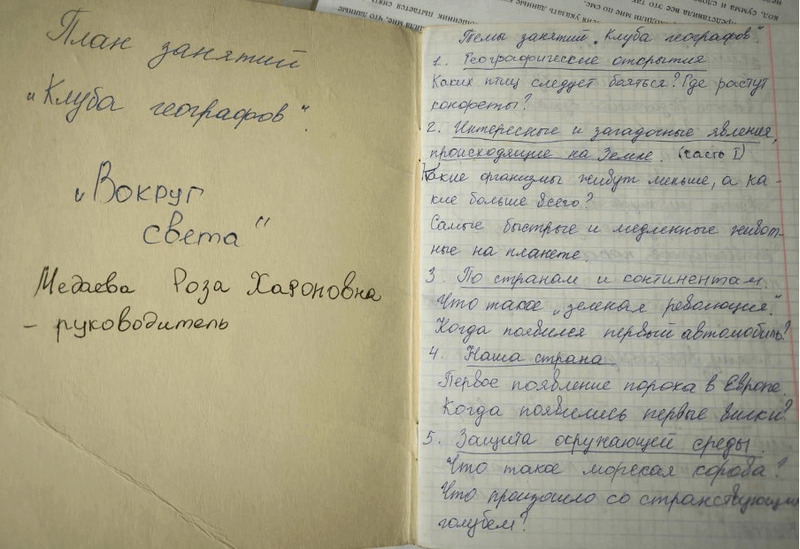 План занятий
„Клуба географов".
„Вокруг
света"
Медаева Роза Хароновна
- руководитель
Темы занятий „Клуба географов".
1. Географические открытия
Каких птиц следует бояться? Где растут
конфеты?
2. Интересные и загадочные явления,
происходящие на Земле. (часть I)
Какие организмы живут меньше, а ка-
кие больше всего?
Самые быстрые и медленные живот-
ные на планете.
3. По странам и континентам.
Что такое „зеленая революция".
Когда появился первый автомобиль?
4. Наша страна
Первое появление пороха в Европе.
Когда появились первые вилки?
5. Защита окружающей среды.
Что такое морская корова?
Что произошло со странствующим
голубем?